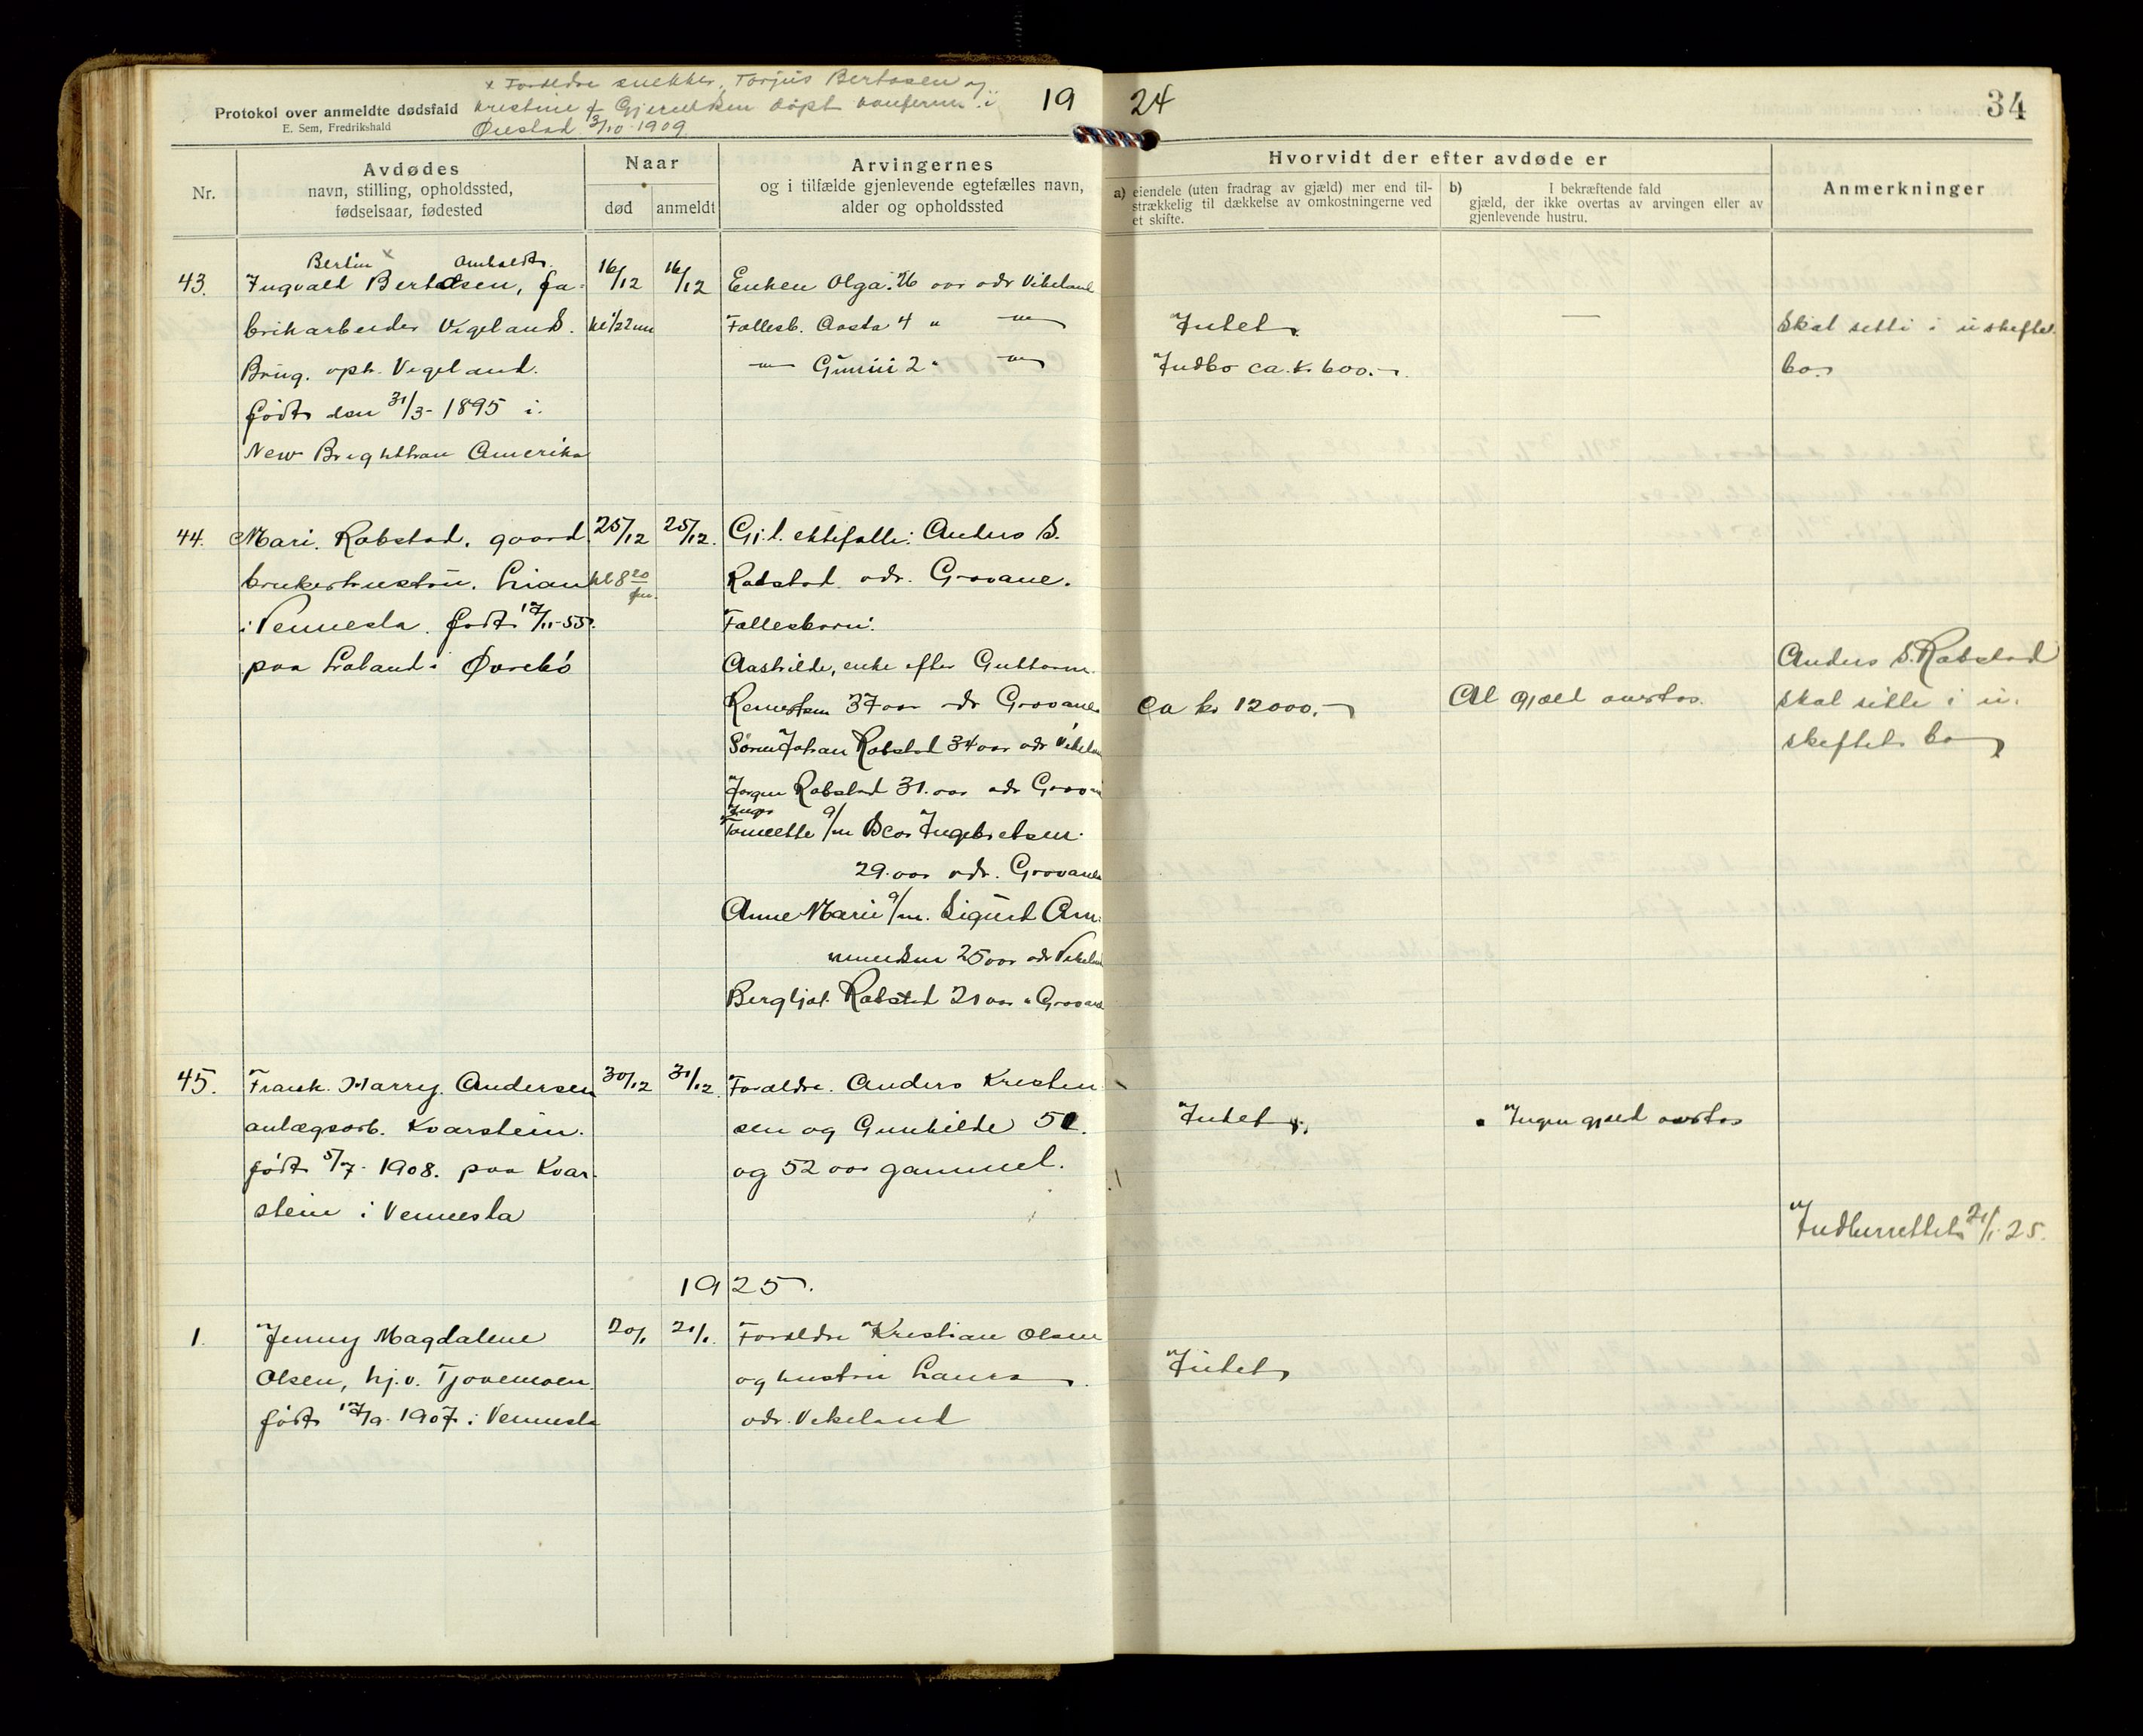 x Foreldre snekker, Torjus Bertosen og
Protokol over anmeldte dødsfald
Kristine f Gjerulsen døpt konferm. i
E. Sem, Fredrikshald
Øiestad 3/10-1909
19 24
34
Nr.
Avdødes
navn, stilling, opholdssted,
fødselsaar, fødested
Naar
død
anmeldt
Arvingernes
og i tilfælde gjenlevende egtefælles navn,
alder og opholdssted
Hvorvidt der efter avdøde er
a) eiendele (uten fradrag av gjæld) mer end til-
strækkelig til dækkelse av omkostningerne ved
et skifte.
b) I bekræftende fald
gjæld, der ikke overtas av arvingen eller av
gjenlevende hustru.
Anmerkninger
Bertin x Omholdt.
43. Ingvald Bertosen, fa-
brikarbeider Vigelands.
Brug. oph. Vigeland.
født den 31/3-1895 i.
New Brighthon Amerika
16/12
kl 1/22 nm
16/12
Enken Olga. 26 aar adr Vikeland
Fællesb. Aasta 4 " —"—
—"— Gunni 2 " —"—
Intet.
Indbo ca. k. 600.-
—
Skal sitti i uskiftet
bo.
44. Mari. Robstad. gaard
brukerhustru. Lian
i Vennesla. født 17/11-55.
paa Loland i Øvrebø
25/12
kl 8 20
fm.
25/12.
Gj.l. ektefælle: Anders S.
Robstad. adr. Grovane.
Fællesbørn:
Aashilde, enke efter Guttorm.
37 aar adr Grovane
Søren Johan Robstad 34 aar adr Vikeland
Jørgen Robstad 31. aar adr Grovane
Inger
Tomette g/m Ingebretsen.
29. aar adr. Grovane
Anne Marie g/m. Sigurd Am-
mundsen 25 aar adr Vikeland
Bergljot. Robstad 21 aar " Grovane
Ca kr 12000.-
Al gjæld overtas.
Anders S. Robstad
skal sitte i u.
skiftet bo
45. Frank. Harry. Andersen
anlægsarb. Kvarstein.
født 5/7-1908. paa Kvar-
stein i Vennesla
30/12
31/12.
Forældre. Anders Kristen
sen og Gunhilde 51.
og 52 aar gammel.
Intet.
Ingen gjæld overtas
Indberettet 21/1-25.
1925.
1. Jenny Magdalene
Olsen, hj.v. Tjovemoen.
født 17/9-1907 i Vennesla
20/1
21/1.
Forældre Kristian Olsen
og hustru Laura
adr. Vikeland
Intet